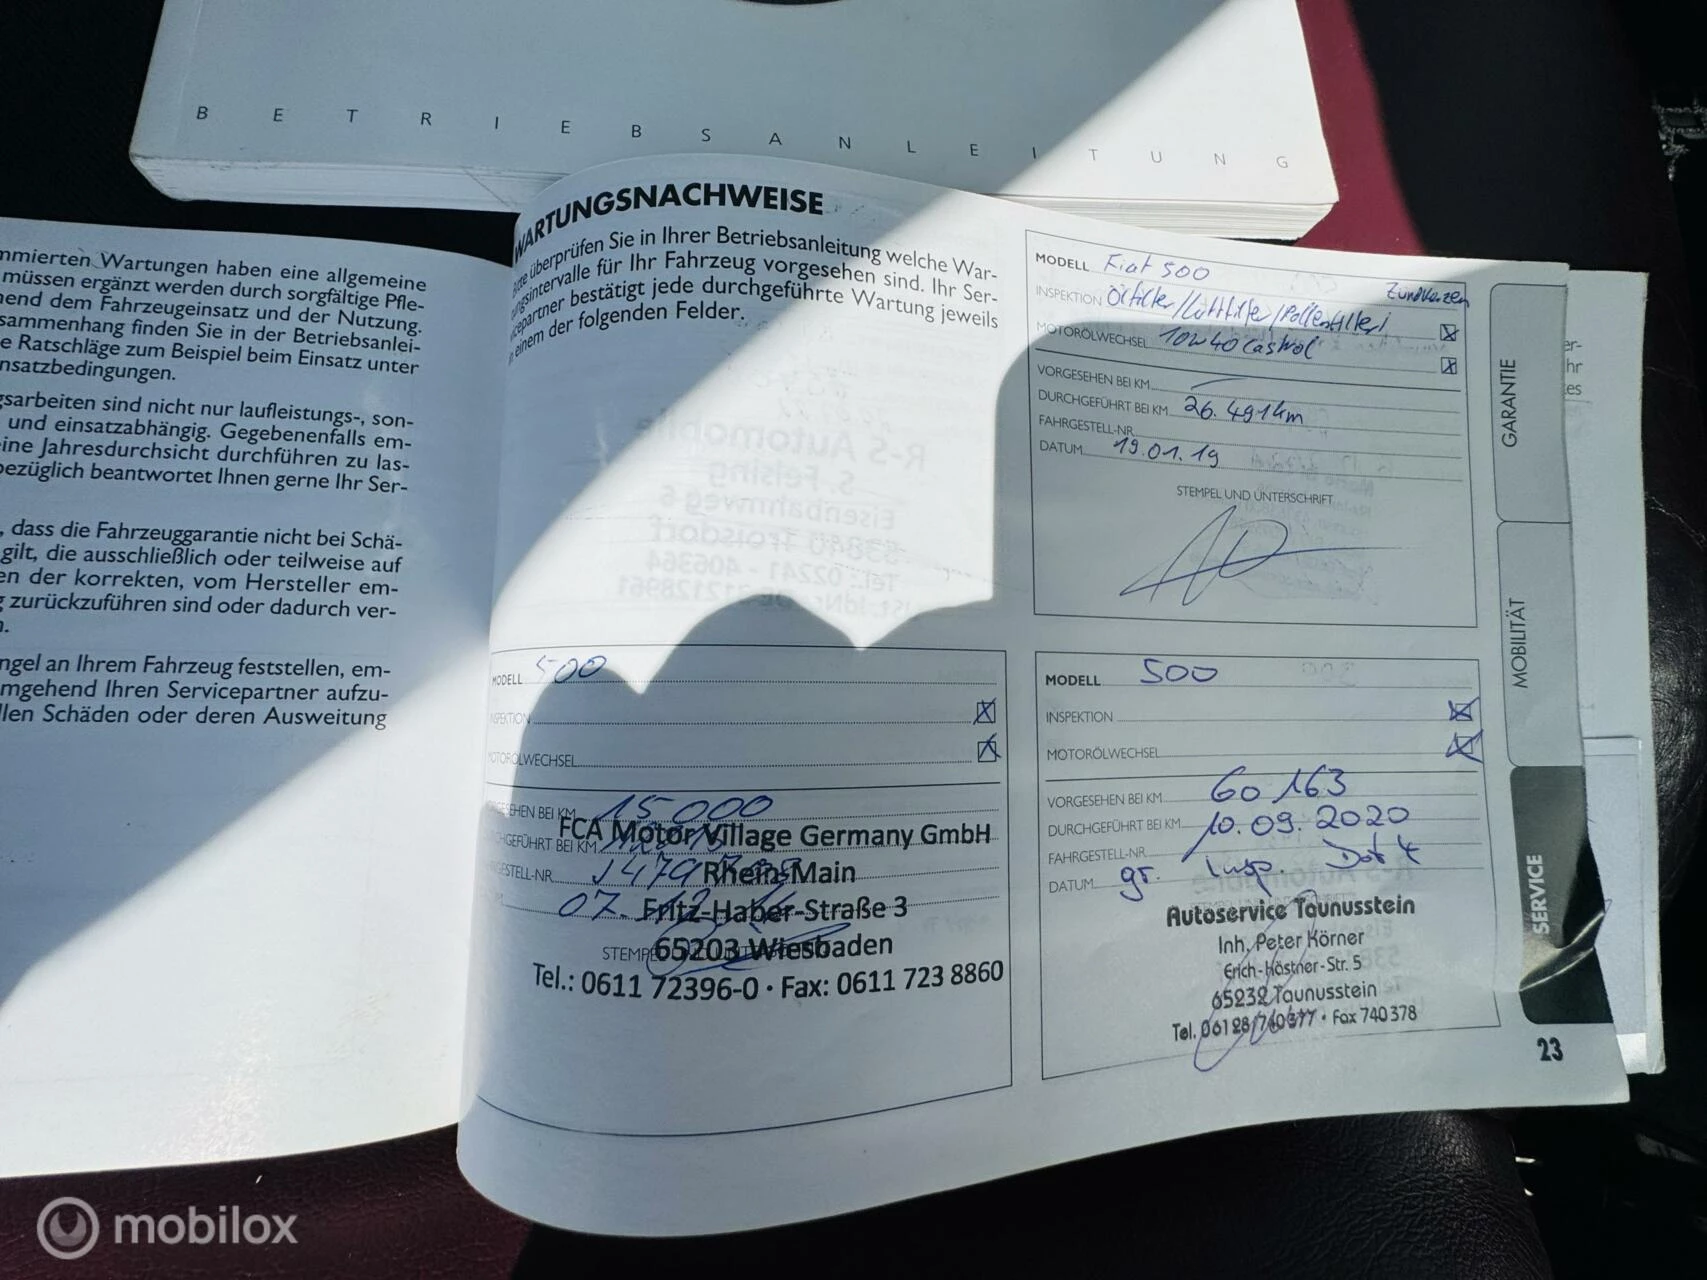 BETRIEBSANLEITUNG
mmierten Wartungen haben eine allgemeine
müssen ergänzt werden durch sorgfältige Pfle-
end dem Fahrzeugeinsatz und der Nutzung.
sammenhang finden Sie in der Betriebsanlei-
e Ratschläge zum Beispiel beim Einsatz unter
nsatzbedingungen.
gsarbeiten sind nicht nur laufleistungs-, son-
und einsatzabhängig. Gegebenenfalls em-
eine Jahresdurchsicht durchführen zu las-
bezüglich beantwortet Ihnen gerne Ihr Ser-
, dass die Fahrzeuggarantie nicht bei Schä-
gilt, die ausschließlich oder teilweise auf
en der korrekten, vom Hersteller em-
g zurückzuführen sind oder dadurch ver-
n.
ngel an Ihrem Fahrzeug feststellen, em-
mgehend Ihren Servicepartner aufzu-
llen Schäden oder deren Ausweitung
WARTUNGSNACHWEISE
Bitte überprüfen Sie in Ihrer Betriebsanleitung welche War-
tungsintervalle für Ihr Fahrzeug vorgesehen sind. Ihr Ser-
vicepartner bestätigt jede durchgeführte Wartung jeweils
in einem der folgenden Felder.
MODELL Fiat 500
Zündkerzen
INSPEKTION Ölfilter/Luftfilter/Pollenfilter
MOTORÖLWECHSEL 10W40 Castrol
VORGESEHEN BEI KM
DURCHGEFÜHRT BEI KM 26.491km
FAHRGESTELL-NR.
DATUM 19.01.19
STEMPEL UND UNTERSCHRIFT
MODELL 500
INSPEKTION
MOTORÖLWECHSEL
VORGESEHEN BEI KM 15000
DURCHGEFÜHRT BEI KM
FCA Motor Village Germany GmbH
Rhein-Main
Fritz-Haber-Straße 3
65203 Wiesbaden
Tel.: 0611 72396-0 · Fax: 0611 723 8860
MODELL 500
INSPEKTION
MOTORÖLWECHSEL
VORGESEHEN BEI KM 60 163
DURCHGEFÜHRT BEI KM 10.09.2020
FAHRGESTELL-NR.
DATUM gr. Insp. Dot 4
Autoservice Taunusstein
Inh. Peter Körner
Erich-Kästner-Str. 5
65232 Taunusstein
Tel. 06128/740377 · Fax 740378
GARANTIE
MOBILITÄT
SERVICE
23
er-
hr
es
mobilox